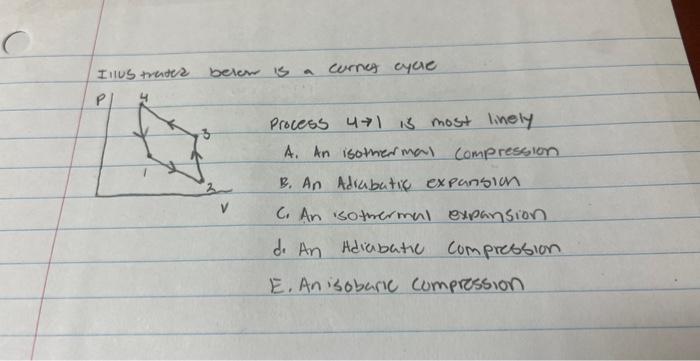 Illustrated below is a carnot cycle
P
4
3
1
2
V
Process 4→1 is most linely
A. An isothermal compression
B. An Adiabatic expansion
C. An isothermal expansion
d. An Adiabatic compression
E. An isobaric compression